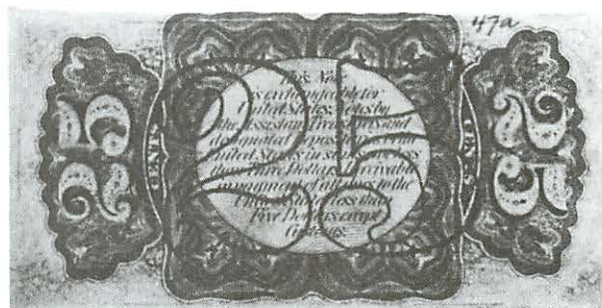 47a
This Note
is exchangeable for
United States Notes by
the Assistant Treasurers and
designated
United States in sums not less
than Three Dollars. Receivable
in payment of all dues to the
United States less than
Five Dollars except
Customs.
25
CENTS
25
CENTS
25